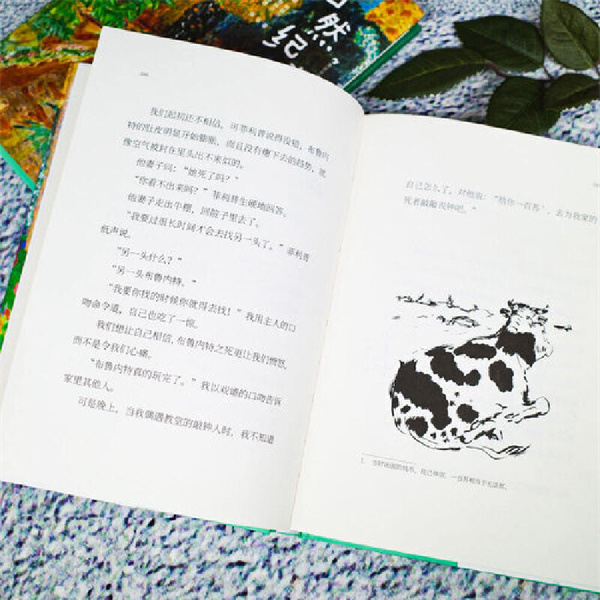 然
纪
我们起初还不相信,可菲利普说得没错,布鲁内
特的肚皮明显开始膨胀,而且没有瘪下去的趋势,就
像空气被封在里头出不来似的。
他妻子问:“她死了吗?”
“你看不出来吗?”菲利普生硬地回答。
他妻子走出牛棚,回院子里去了。
“我要过很长时间才会去找另一头了。”菲利普
低声说。
“另一头什么?”
“另一头布鲁内特。”
“我要你找的时候你就得去找!”我用主人的口
吻命令道,自己也吃了一惊。
我们想让自己相信,布鲁内特之死更让我们愤怒,
而不是令我们心痛。
“布鲁内特真的玩完了。”我以戏谑的口吻告诉
家里其他人。
可是晚上,当我偶遇教堂的敲钟人时,我不知道
自己怎么了,对他说:“给你一百苏¹,去为我家的
死者敲敲丧钟吧。”
1.